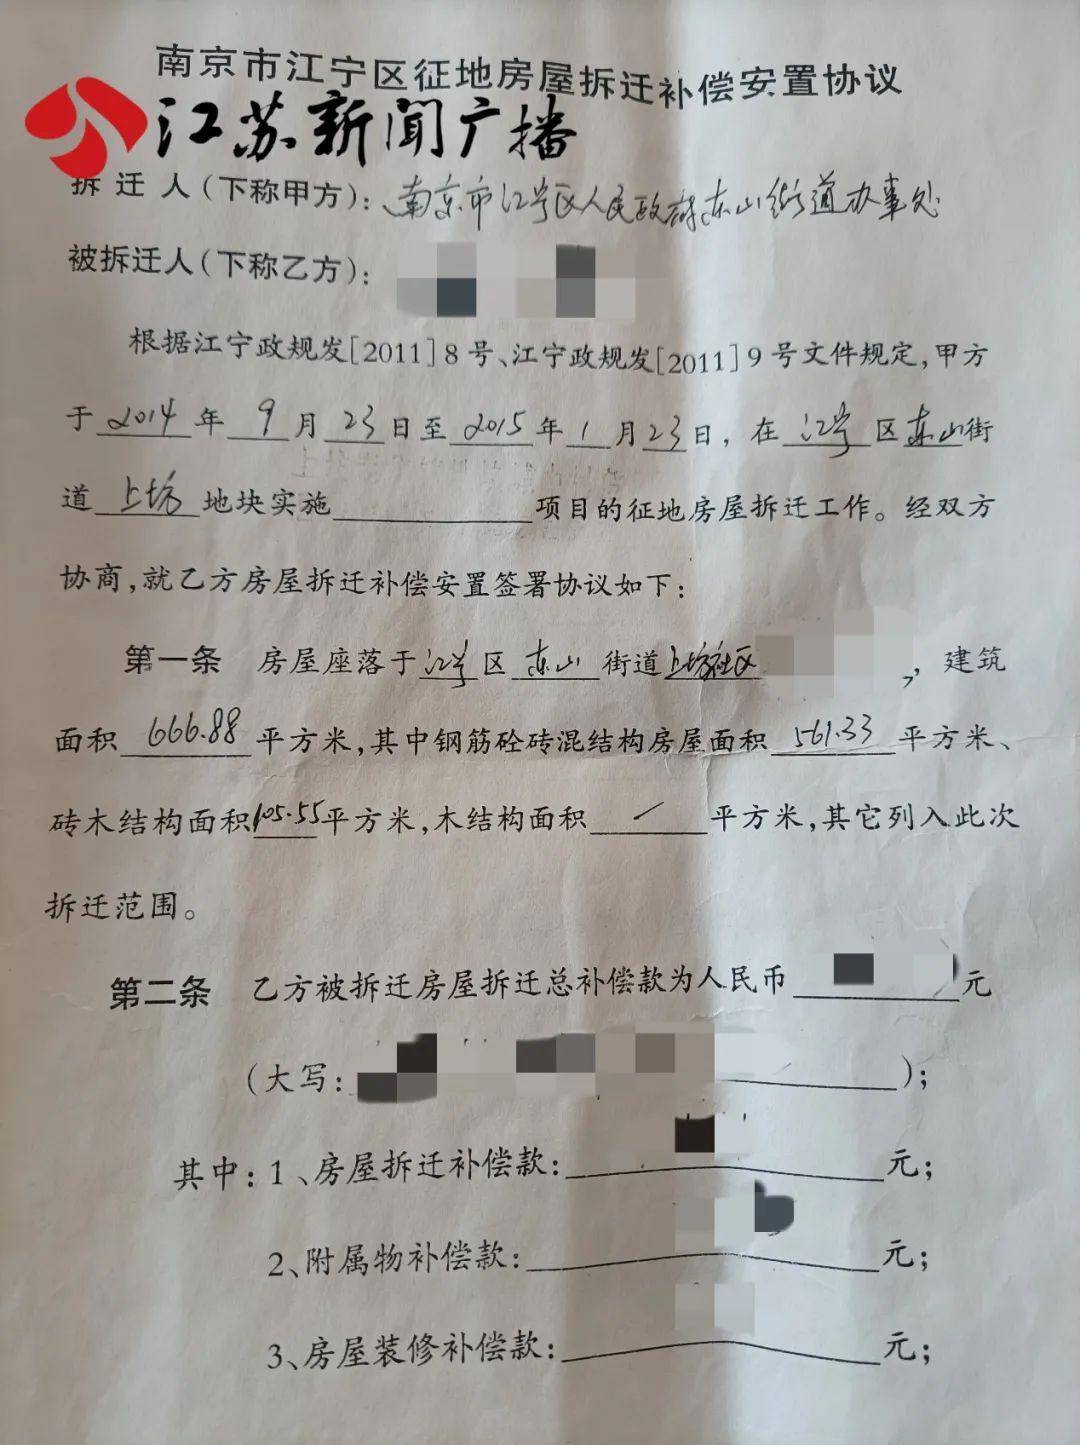 南京市江宁区征地房屋拆迁补偿安置协议
江苏新闻广播
拆迁人(下称甲方):南京市江宁区人民政府东山街道办事处
被拆迁人(下称乙方):
根据江宁政规发[2011]8号、江宁政规发[2011]9号文件规定,甲方
于2014年9月23日至2015年1月23日,在江宁区东山街
道上坊地块实施____项目的征地房屋拆迁工作。经双方
协商,就乙方房屋拆迁补偿安置签署协议如下:
第一条 房屋座落于江宁区东山街道上坊社区,建筑
面积666.88平方米,其中钢筋砼砖混结构房屋面积561.33平方米、
砖木结构面积105.55平方米,木结构面积/平方米,其它列入此次
拆迁范围。
第二条 乙方被拆迁房屋拆迁总补偿款为人民币____元
(大写:____);
其中:1、房屋拆迁补偿款:____元;
2、附属物补偿款:____元;
3、房屋装修补偿款:____元;